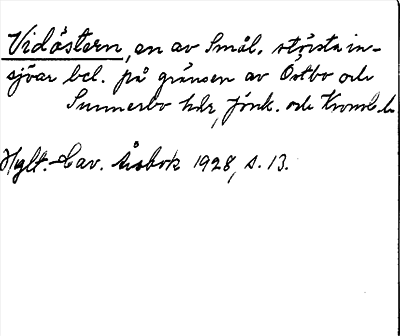 Vidöstern, en av Smål. största in-
sjöar bel. på gränsen av Östbo och
Sunnerbo hdr, Jönk. och Kronob. l.
Hylt.-Cav. årsbok 1928, s. 13.